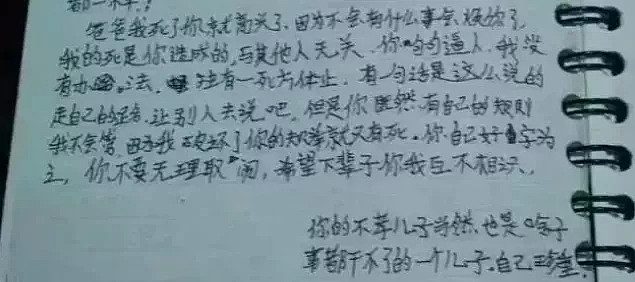 爸爸我死了你就高兴了.因为不会有什么事会烦你了,
我的死是你造成的,与其他人无关.你句句逼人,我没
有办法,独有一死方休止.有一句话是这么说的
走自己的路,让别人去说吧.但是你既然有自己的规则
我不会管,因为我破坏了你的规则就又有死.你自己好自为
之,你不要无理取闹,希望下辈子你我互不相识.
你的不孝儿子当然.也是啥子
事都干不了的一个儿子.自己珍重.